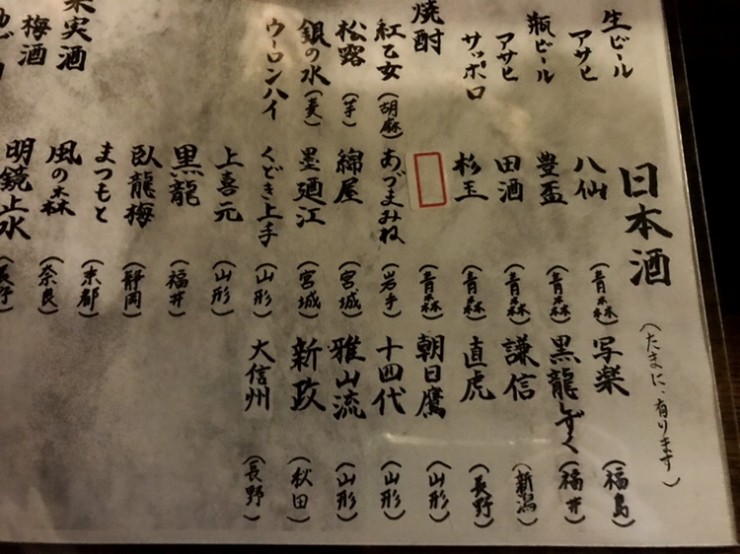 生ビール
アサヒ
瓶ビール
アサヒ
サッポロ
焼酎
紅乙女(胡麻)
松露(芋)
銀の水(麦)
ウーロンハイ
果実酒
梅酒
日本酒
(たまに、有ります)
八仙(青森)
豊盃(青森)
田酒(青森)
杉玉(青森)
(青森)
あづまみね(岩手)
綿屋(宮城)
墨廼江(宮城)
くどき上手(山形)
上喜元(山形)
黒龍(福井)
臥龍梅(静岡)
まつもと(京都)
風の森(奈良)
明鏡止水(長野)
写楽(福島)
黒龍しずく(福井)
謙信(新潟)
直虎(長野)
朝日鷹(山形)
十四代(山形)
雅山流(山形)
新政(秋田)
大信州(長野)